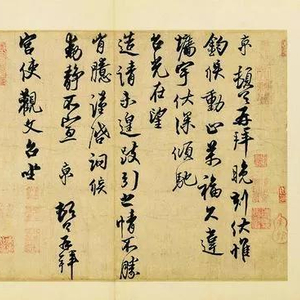 京頓首再拜晚刻伏惟
鈞候動止萬福久違
牆宇伏深傾馳
台光在望
造請未遑跂引之情不勝
胷臆謹啓詞候
動靜不宣 京 頓首再拜
宮使觀文台坐